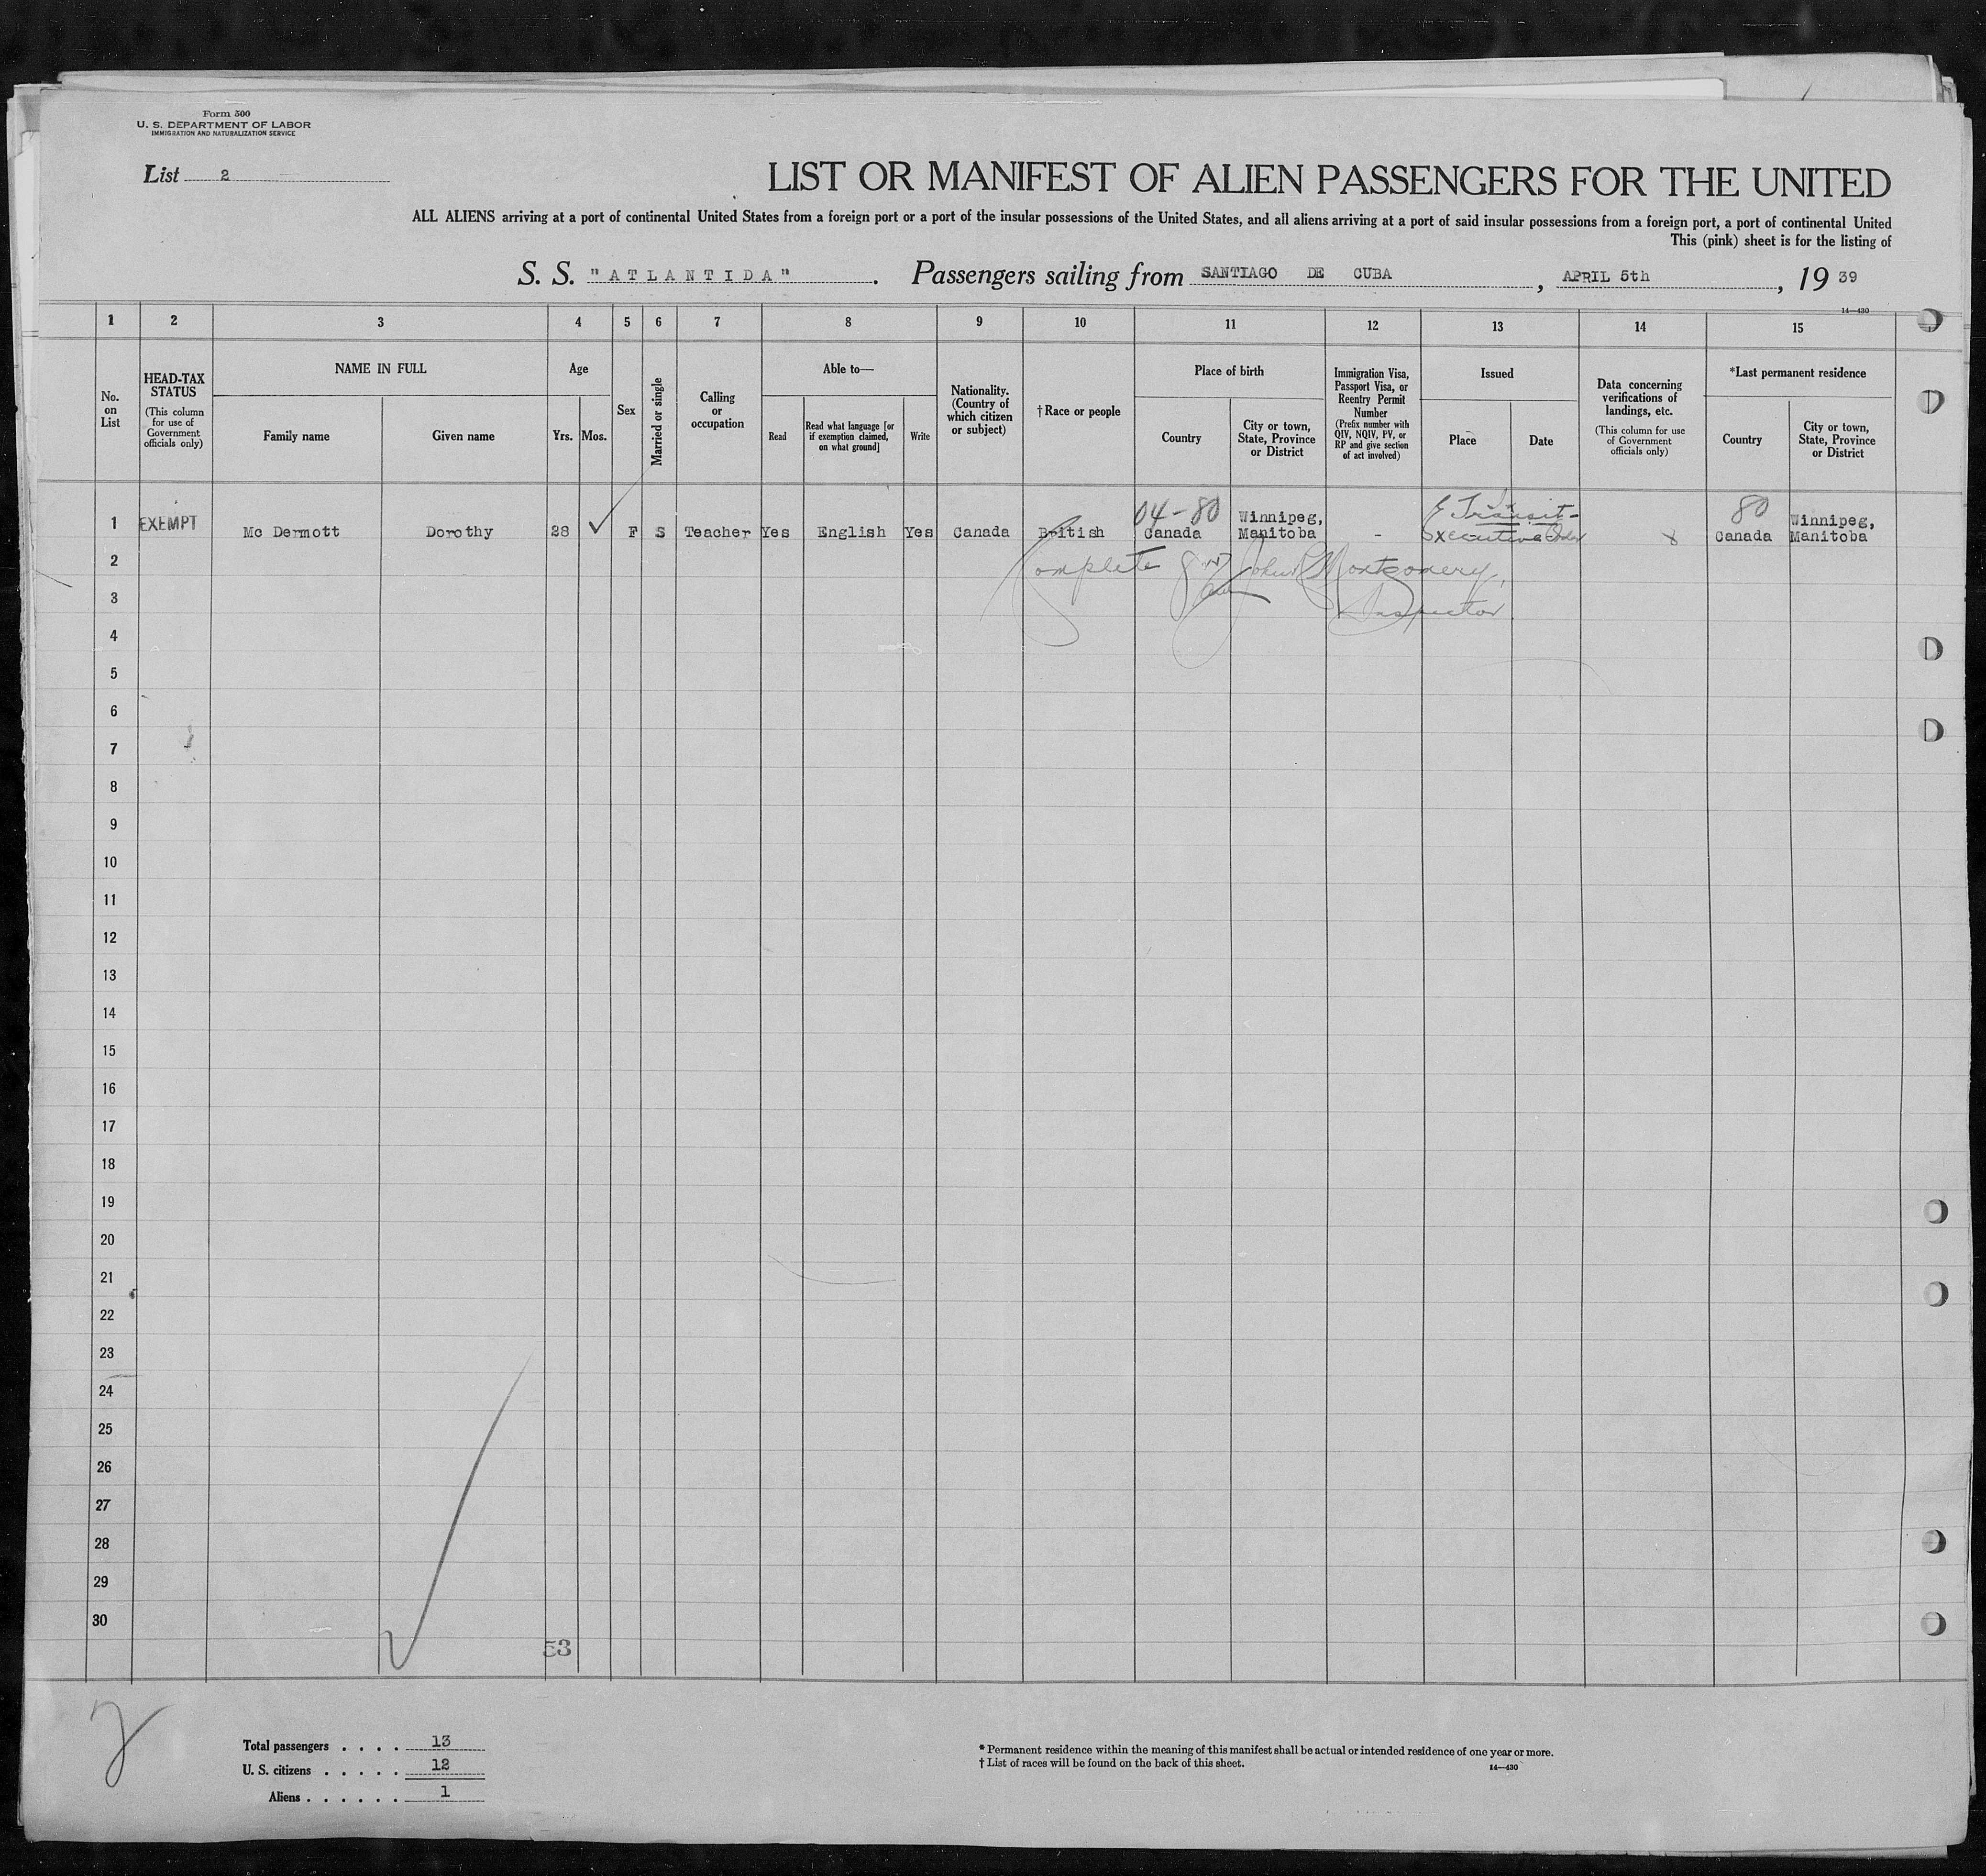 Form 500
U. S. DEPARTMENT OF LABOR
IMMIGRATION AND NATURALIZATION SERVICE
List 2
LIST OR MANIFEST OF ALIEN PASSENGERS FOR THE UNITED
ALL ALIENS arriving at a port of continental United States from a foreign port or a port of the insular possessions of the United States, and all aliens arriving at a port of said insular possessions from a foreign port, a port of continental United
This (pink) sheet is for the listing of
S. S. "ATLANTIDA". Passengers sailing from SANTIAGO DE CUBA, APRIL 5th, 19 39
14—430
1 2 3 4 5 6 7 8 9 10 11 12 13 14 15
No. on List
HEAD-TAX STATUS
(This column for use of Government officials only)
NAME IN FULL
Family name
Given name
Age
Yrs.
Mos.
Sex
Married or single
Calling or occupation
Able to—
Read
Read what language [or if exemption claimed, on what ground]
Write
Nationality. (Country of which citizen or subject)
†Race or people
Place of birth
Country
City or town, State, Province or District
Immigration Visa, Passport Visa, or Reentry Permit Number
(Prefix number with QIV, NQIV, PV, or RP and give section of act involved)
Issued
Place
Date
Data concerning verifications of landings, etc.
(This column for use of Government officials only)
*Last permanent residence
Country
City or town, State, Province or District
04-80 Transit- 80
1 EXEMPT Mc Dermott Dorothy 28 ✓ F S Teacher Yes English Yes Canada British Canada Winnipeg, Manitoba - Executive Order Canada Winnipeg, Manitoba
2 Complete John Montgomery,
3 Inspector
4
5
6
7
8
9
10
11
12
13
14
15
16
17
18
19
20
21
22
23
24
25
26
27
28
29
30
53
2
Total passengers . . . . 13
U. S. citizens . . . . . 12
Aliens . . . . . . 1
* Permanent residence within the meaning of this manifest shall be actual or intended residence of one year or more.
† List of races will be found on the back of this sheet.
14—430